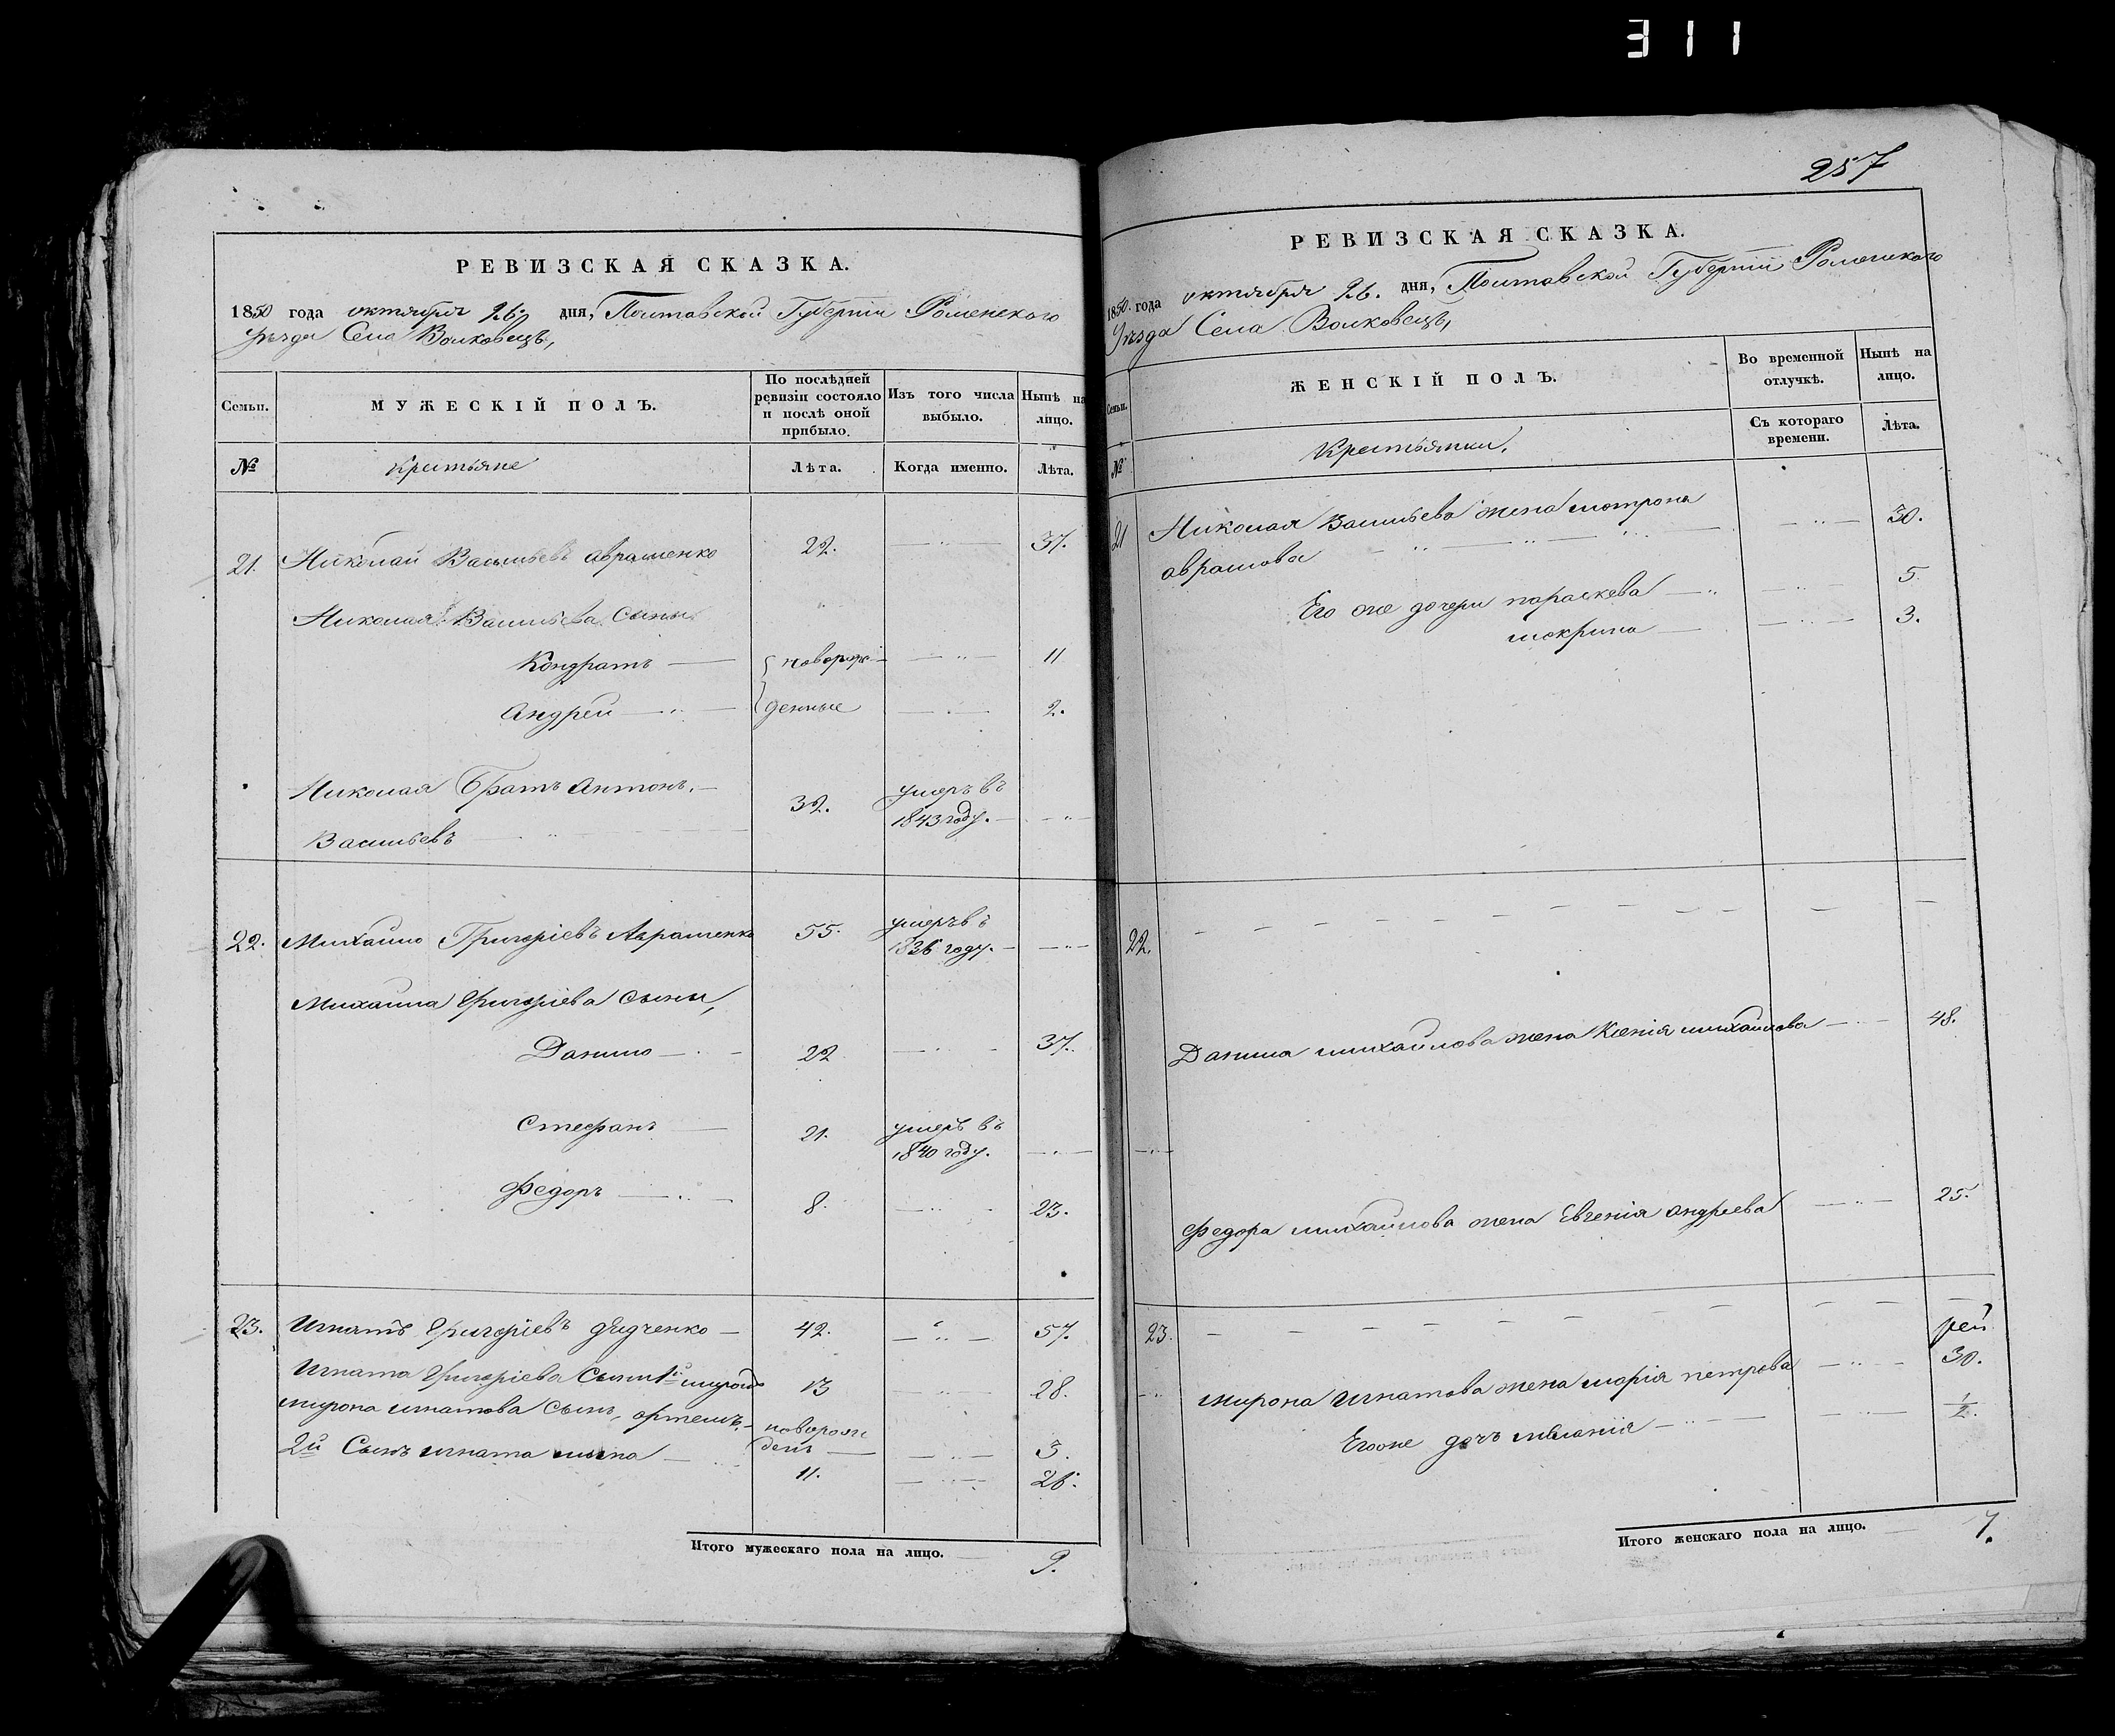 311
257
РЕВИЗСКАЯ СКАЗКА.
1850 года октября 26 дня, Полтавской Губернiи Роменского
Уѣзда Села Волковецъ,
Семьи.
МУЖЕСКІЙ ПОЛЪ.
По послѣдней
ревизіи состояло
и послѣ оной
прибыло.
Изъ того числа
выбыло.
Нынѣ на
лицо.
№
Крестьяне
Лѣта.
Когда именно.
Лѣта.
21. Николай Васильевъ Авраменко 22. 37.
Николая Васильева сыны
Кондратъ новорож- 11
Андрей денные 2.
Николая братъ Антонъ. 32. умеръ въ
Васильевъ 1843 году.
22. Михайло Григоріевъ Авраменко 55. умеръ въ
1836 году.
Михайла Григоріева сыны,
Данило 22 37.
Стефанъ 21. умеръ въ
1840 году.
Федоръ 8. 23.
23. Игнатъ Григоріевъ Дядченко 42. 57.
Игната Григоріева сыны 1й миронъ 13 28.
мирона игнатова сынъ, артемъ новорож
ден 3.
2й Сынъ игната 11. 26.
Итого мужескаго пола на лицо. 9.
РЕВИЗСКАЯ СКАЗКА.
1850 года октября 26. дня, Полтавской Губернiи Роменского
Уѣзда Села Волковецъ,
Семьи.
ЖЕНСКІЙ ПОЛЪ.
Во временной
отлучкѣ.
Нынѣ на
лицо.
№
Крестьянки.
Съ котораго
времени.
Лѣта.
21 Николая Васильева жена мотрона 30.
аврамова
Его же дочери параскева 5.
мокрина 3.
22.
Данила михайлова жена Ксенія михайлова 48.
Федора михайлова жена Евгенія андреева 25.
23.
мирона игнатова жена марія петрова 30.
Его же дочь меланія 1/2.
Итого женскаго пола на лицо. 7.